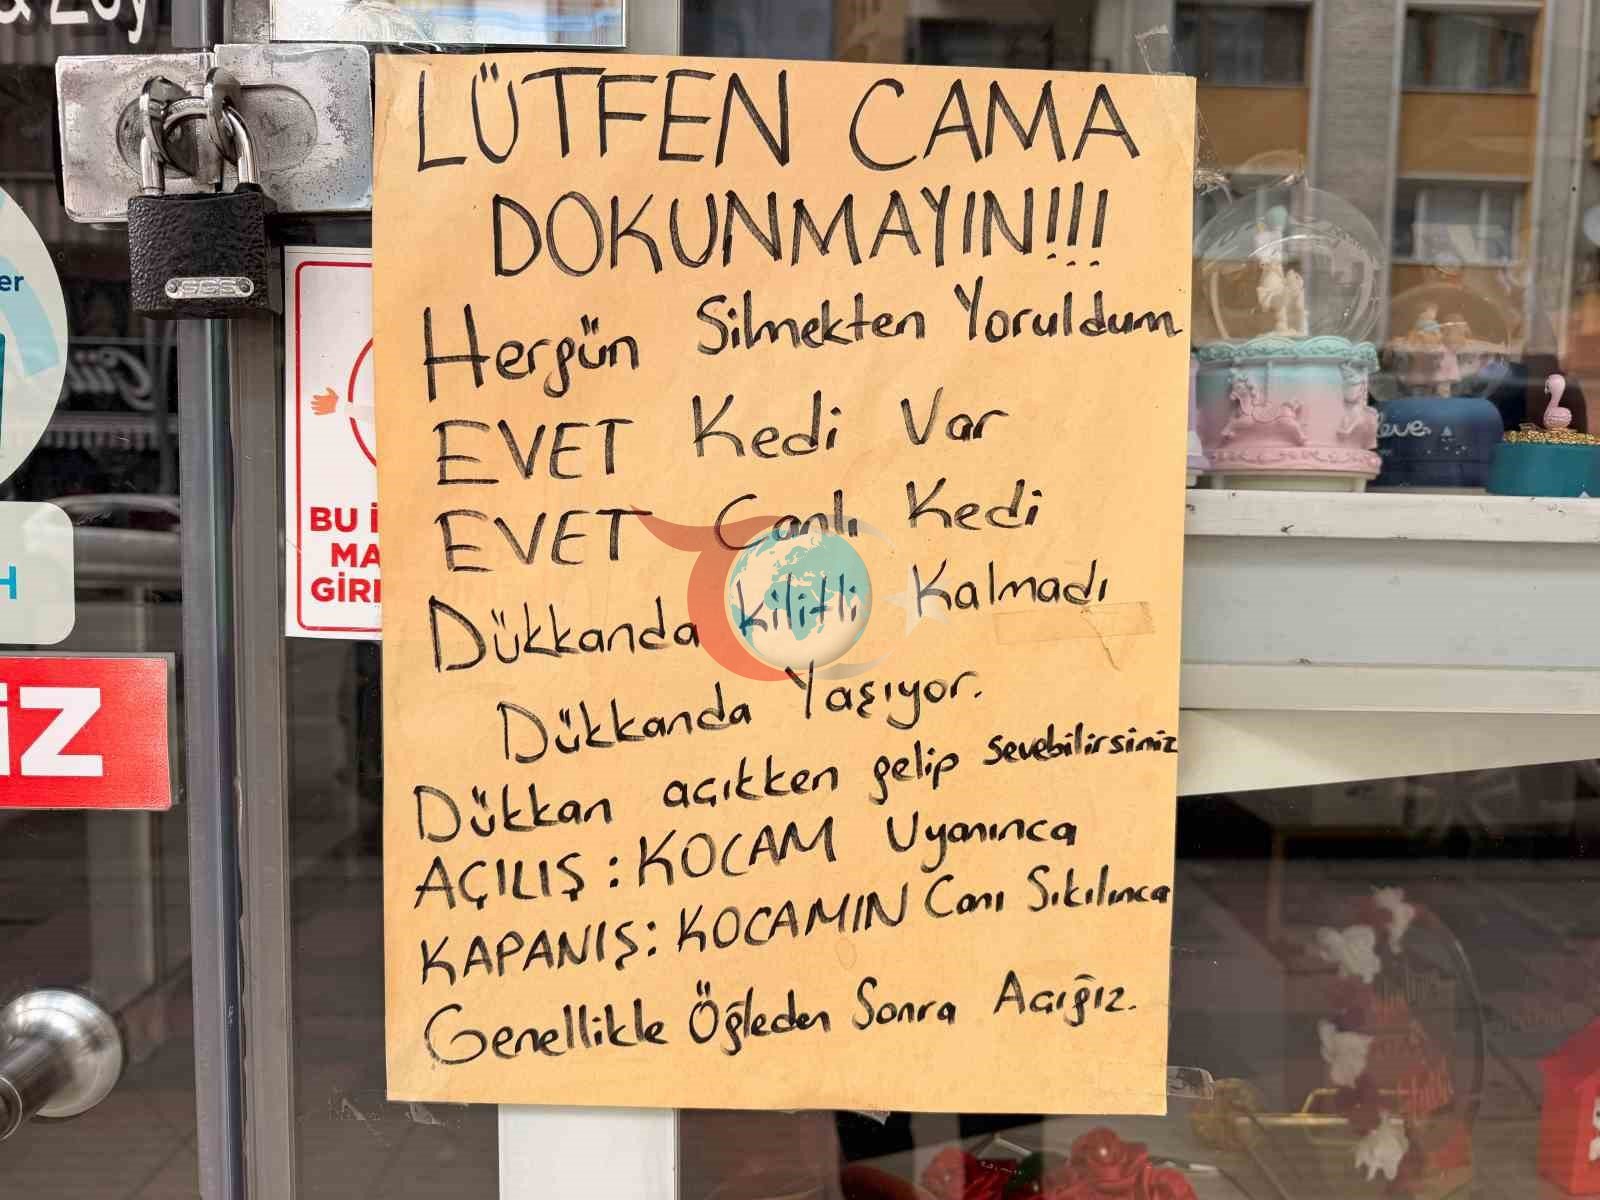 LÜTFEN CAMA
DOKUNMAYIN!!!
Hergün Silmekten Yoruldum
EVET Kedi Var
EVET Canlı Kedi
Dükkanda Kilitli Kalmadı
Dükkanda Yaşıyor.
Dükkan açıkken gelip sevebilirsiniz
AÇILIŞ : KOCAM Uyanınca
KAPANIŞ : KOCAMIN Canı Sıkılınca
Genellikle Öğleden Sonra Açığız.
SGS
er
H
iZ
BU İ
MA
GİRİ